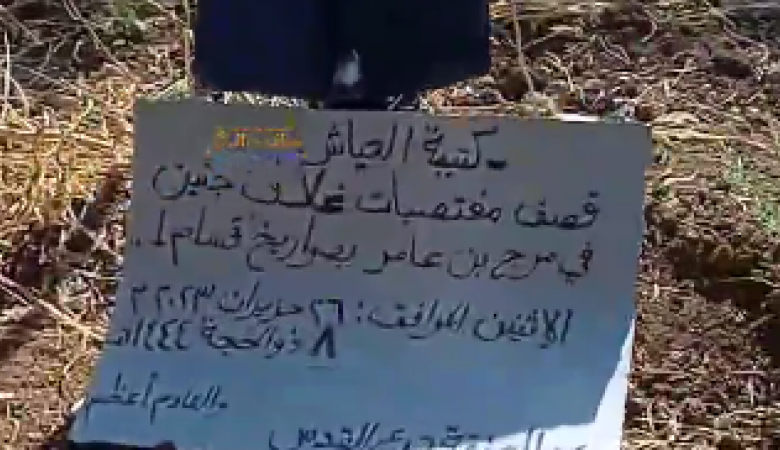 - كتيبة العياش
قصف مغتصبات غلاف جنين
في مرج بن عامر بصواريخ قسام 1..
الإثنين الموافق: ٢٦ حزيران ٢٠٢٣ م
٨ ذو الحجة ١٤٤٤هـ
- القادم أعظم